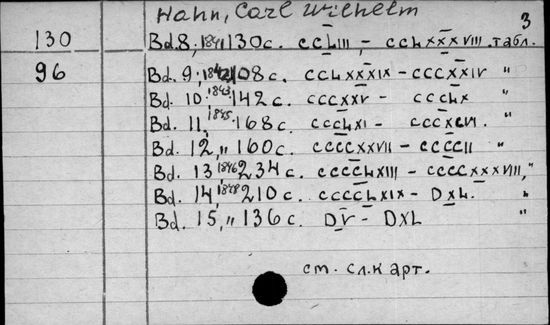 Hahn, Carl Wilhelm
3
130 Bd. 8, 1841 130 с. CCLIII – CCLXXXVIII. табл.
96 Bd. 9, 1842 108 с. CCLXXXIX – CCCXXIV "
Bd. 10. 1843. 142 с. CCCXXV – CCCLX "
Bd. 11, 1845. 168 с. CCCLXI – CCCXCVI. "
Bd. 12, „ 160 с. CCCCXXVII – CCCCLII "
Bd. 13 1846 234 с. CCCCLXIII – CCCCXXXVIII, "
Bd. 14, 1848 210 с. CCCCLXIX – DXL. "
Bd. 15, „ 136 с. DV – DXL "
см. сл. карт.